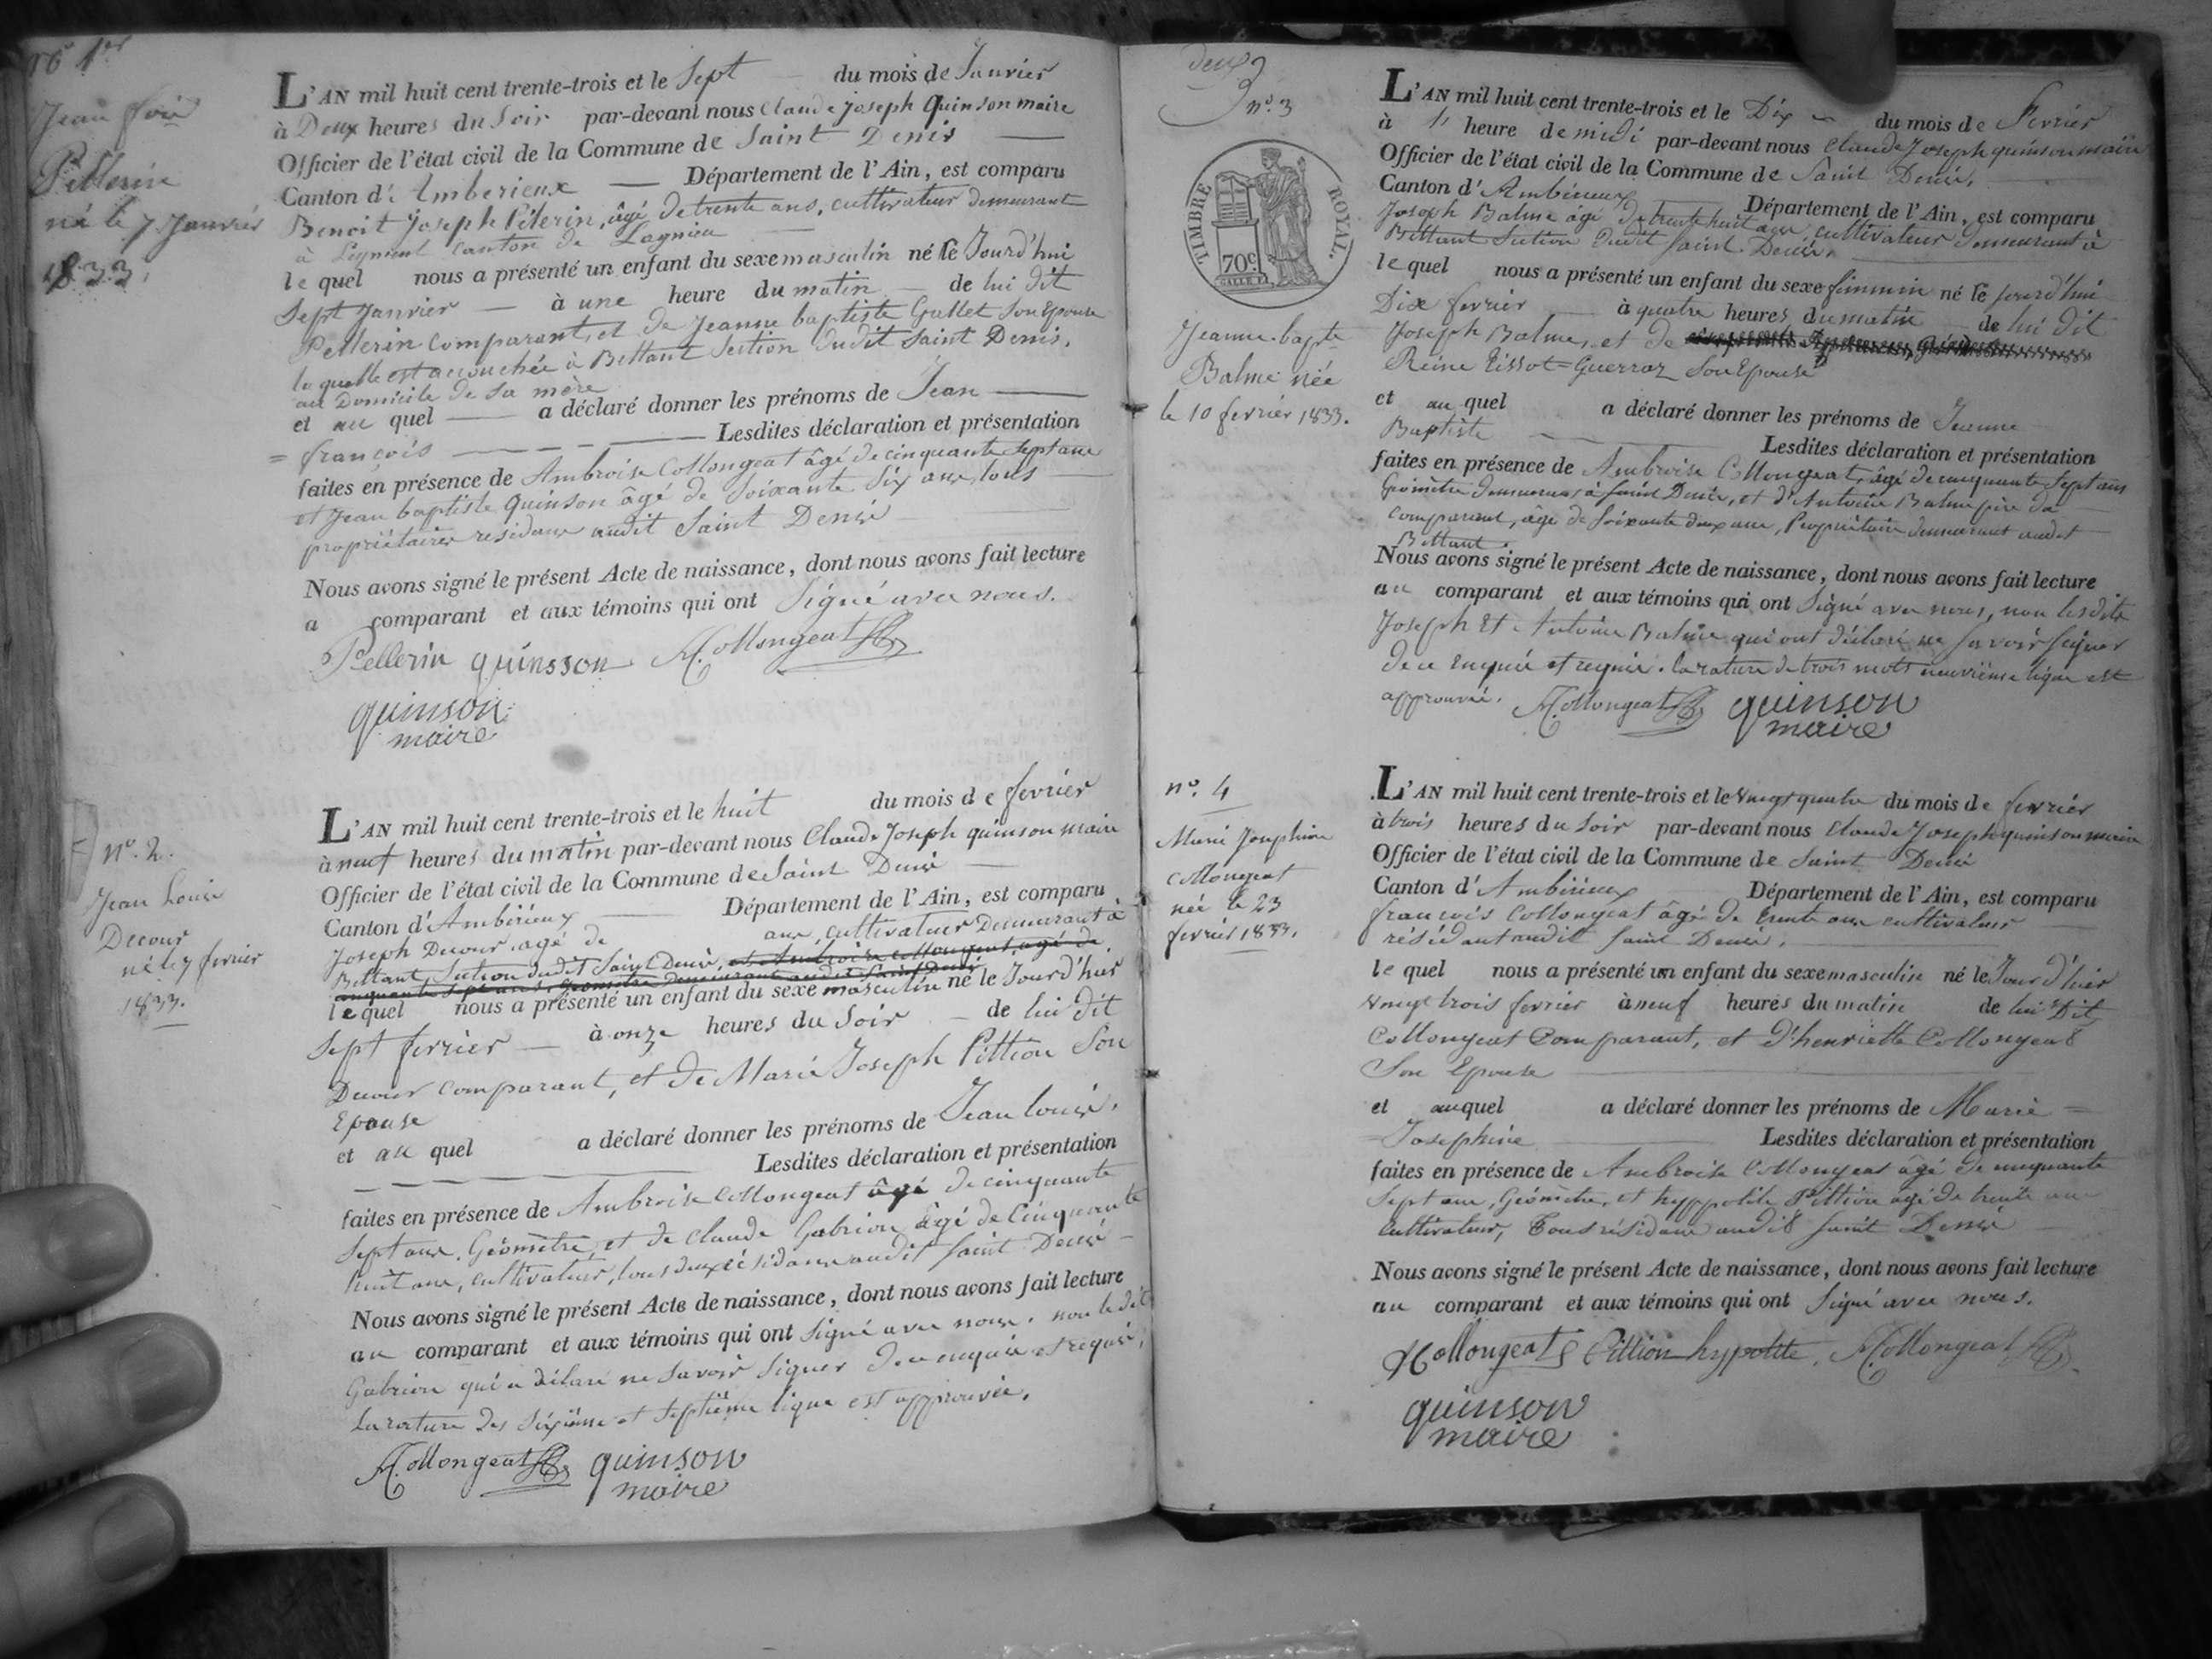 no 1er
Jean fois
Pellerin
né le 7 Janvier
1833.
L'AN mil huit cent trente-trois et le Sept du mois de Janvier
à Deux heures du Soir par-devant nous Claude Joseph Quinson maire
Officier de l'état civil de la Commune de Saint Denis
Canton d' Amberieux Département de l'Ain, est comparu
Benoit Joseph Pélerin, âgé de trente ans, cultivateur demeurant
à canton de Lagnieu
le quel nous a présenté un enfant du sexe masculin né le Jourd'hui
Sept Janvier à une heure du matin de lui dit
Pellerin comparant, et de Jeanne baptiste Gallet Son Epouse
la quelle est accouchée à Bettant Section dudit Saint Denis,
au Domicile de sa mère
et au quel a déclaré donner les prénoms de Jean
= françois Lesdites déclaration et présentation
faites en présence de Ambroise Collongeat âgé de cinquante Sept ans
et Jean baptiste Quinson âgé de Soixante Six ans, tous
propriétaires residans audit Saint Denis
Nous avons signé le présent Acte de naissance, dont nous avons fait lecture
a comparant et aux témoins qui ont Signé avec nous.
Pellerin quinsson A. Collongeat
quinson
maire
n°. 2.
Jean Louis
Decour
né le 7 fevrier
1833.
L'AN mil huit cent trente-trois et le huit du mois de fevrier
à neuf heures du matin par-devant nous Claude Joseph quinson maire
Officier de l'état civil de la Commune de Saint Denis
Canton d'Ambérieux Département de l'Ain, est comparu
Joseph Decour, agé de ans, cultivateur Demeurant à
Bettant, Section dudit Saint Denis, et Ambroise Collongeat, agé de
cinquante sept ans, Géomètre demeurant audit Saint Denis
le quel nous a présenté un enfant du sexe masculin né le Jourd'hier
Sept fevrier à onze heures du Soir de lui dit
Decour comparant, et de Marie Joseph Pittion Son
Epouse
et au quel a déclaré donner les prénoms de Jean Louis.
Lesdites déclaration et présentation
faites en présence de Ambroise Collongeat âgé de cinquante
Sept ans, Géomètre, et de Claude Gabrion âgé de Cinquante
huit ans, cultivateur, tous deux résidans audit Saint Denis
Nous avons signé le présent Acte de naissance, dont nous avons fait lecture
au comparant et aux témoins qui ont Signé avec nous, non le dit
Gabrion qui a déclaré ne Savoir Signer de ce enquis et requis,
La rature des Sixième et Septième ligne est approuvée.
A. Collongeat quinson
maire
deux
n°. 3
TIMBRE ROYAL.
70c.
Jeanne-bapte
Balme née
le 10 fevrier 1833.
L'AN mil huit cent trente-trois et le Dix du mois de Fevrier
à 1 heure de midi par-devant nous Claude Joseph quinson maire
Officier de l'état civil de la Commune de Saint Denis,
Canton d'Ambérieux Département de l'Ain, est comparu
Joseph Balme âgé de trente huit ans, cultivateur demeurant à
Bettant Section dudit Saint Denis.
le quel nous a présenté un enfant du sexe féminin né le jourd'hui
Dix fevrier à quatre heures du matin de lui dit
Joseph Balme, et de
Reine Tissot = Guerraz Son Epouse
et au quel a déclaré donner les prénoms de Jeanne
Baptiste Lesdites déclaration et présentation
faites en présence de Ambroise Collongeat, âgé de cinquante Sept ans
Géomètre demeurant à Saint Denis, et d'Antoine Balme père du
comparant, âgé de Soixante deux ans, Propriétaire demeurant audit
Bettant.
Nous avons signé le présent Acte de naissance, dont nous avons fait lecture
au comparant et aux témoins qui ont Signé avec nous, non lesdits
Joseph Et Antoine Balme qui ont déclaré ne Savoir Signer
de ce Enquis et requis. la rature de trois mots neuvième ligne est
approuvée. A. Collongeat quinson
maire
n°. 4
Marie Josephine
Collongeat
née le 23
fevrier 1833.
L'AN mil huit cent trente-trois et le vingt quatre du mois de fevrier
à trois heures du Soir par-devant nous Claude Joseph quinson maire
Officier de l'état civil de la Commune de Saint Denis
Canton d'Ambérieux Département de l'Ain, est comparu
françois Collongeat âgé de trente ans cultivateur
résidant audit Saint Denis.
le quel nous a présenté un enfant du sexe masculin né le Jour d'hier
vingt trois fevrier à neuf heures du matin de lui Dit
Collongeat Comparant, et d'henriette Collongeat
Son Epouse
et auquel a déclaré donner les prénoms de Marie =
= Josephine Lesdites déclaration et présentation
faites en présence de Ambroise Collongeat âgé de cinquante
Sept ans, Géomètre, et hyppolite Pittion âgé de trente ans
Cultivateur, Tous résidans audit Saint Denis
Nous avons signé le présent Acte de naissance, dont nous avons fait lecture
au comparant et aux témoins qui ont Signé avec nous.
Collongeat Pittion hypolite, A. Collongeat
quinson
maire